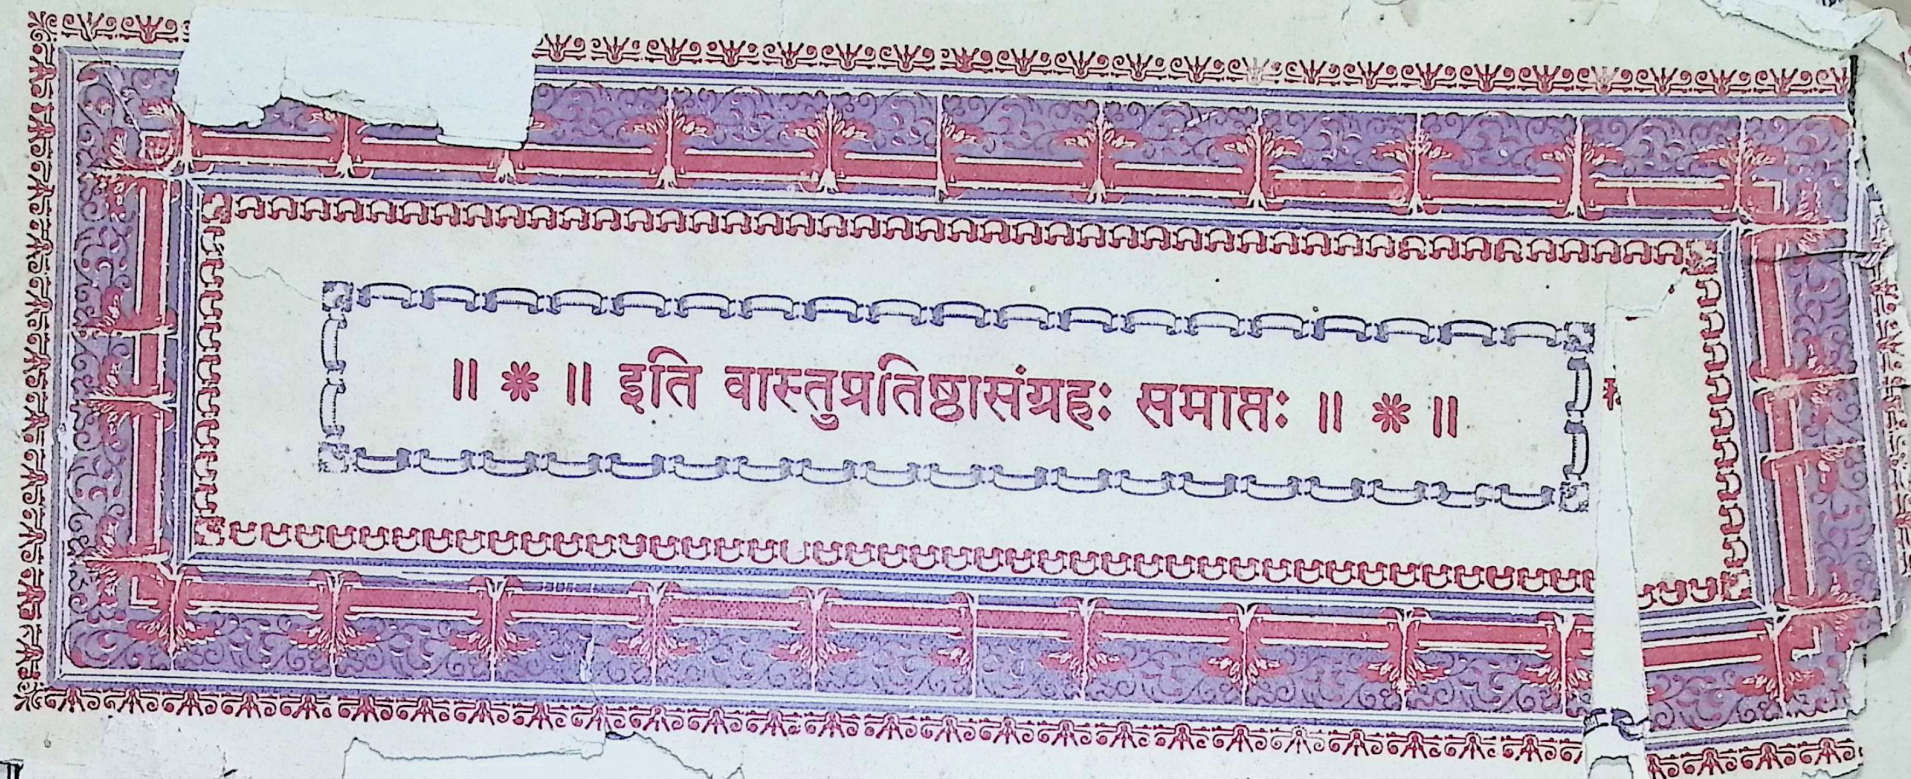 ॥ ❋ ॥ इति वास्तुप्रतिष्ठासंग्रहः समाप्तः ॥ ❋ ॥